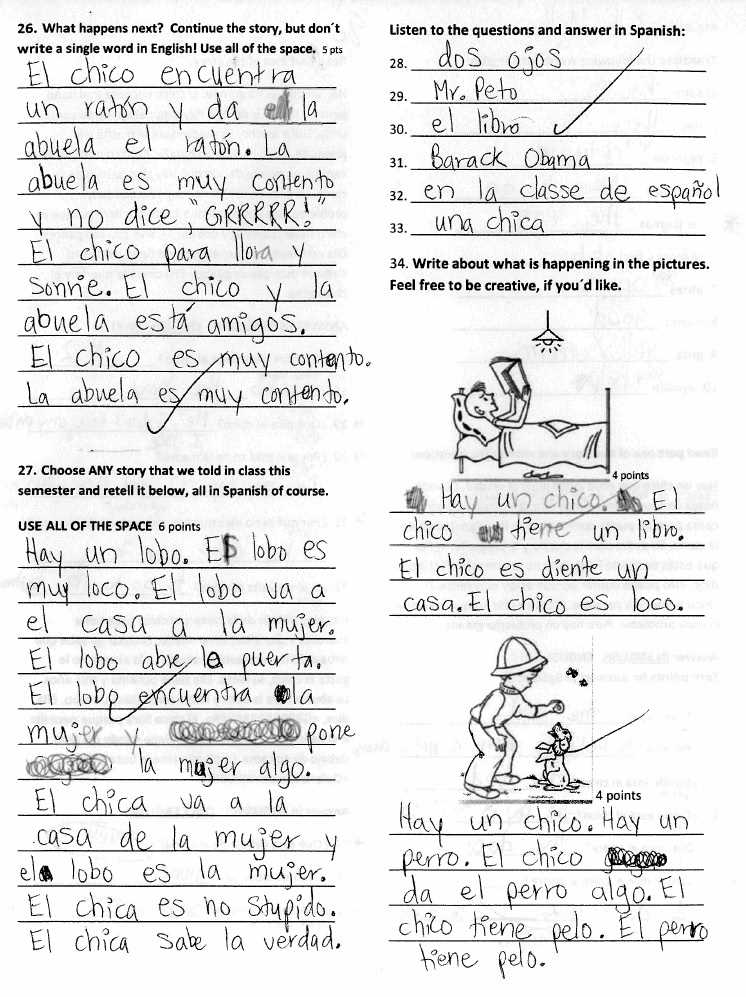 26. What happens next? Continue the story, but don´t
write a single word in English! Use all of the space. 5 pts
El chico encuentra
un ratón y da la
abuela el ratón. La
abuela es muy contento
y no dice, "GRRRRR!"
El chico para llora y
sonrie. El chico y la
abuela está amigos.
El chico es muy contento.
La abuela es muy contento.
27. Choose ANY story that we told in class this
semester and retell it below, all in Spanish of course.
USE ALL OF THE SPACE 6 points
Hay un lobo. El lobo es
muy loco. El lobo va a
el casa a la mujer.
El lobo abre la puerta.
El lobo encuentra la
mujer y pone
la mujer algo.
El chica va a la
casa de la mujer y
el lobo es la mujer.
El chica es no stupido.
El chica sabe la verdad.
Listen to the questions and answer in Spanish:
28. dos ojos
29. Mr. Peto
30. el libro
31. Barack Obama
32. en la classe de español
33. una chica
34. Write about what is happening in the pictures.
Feel free to be creative, if you´d like.
4 points
Hay un chico. El
chico tiene un libro.
El chico es diente un
casa. El chico es loco.
4 points
Hay un chico. Hay un
perro. El chico
da el perro algo. El
chico tiene pelo. El perro
tiene pelo.